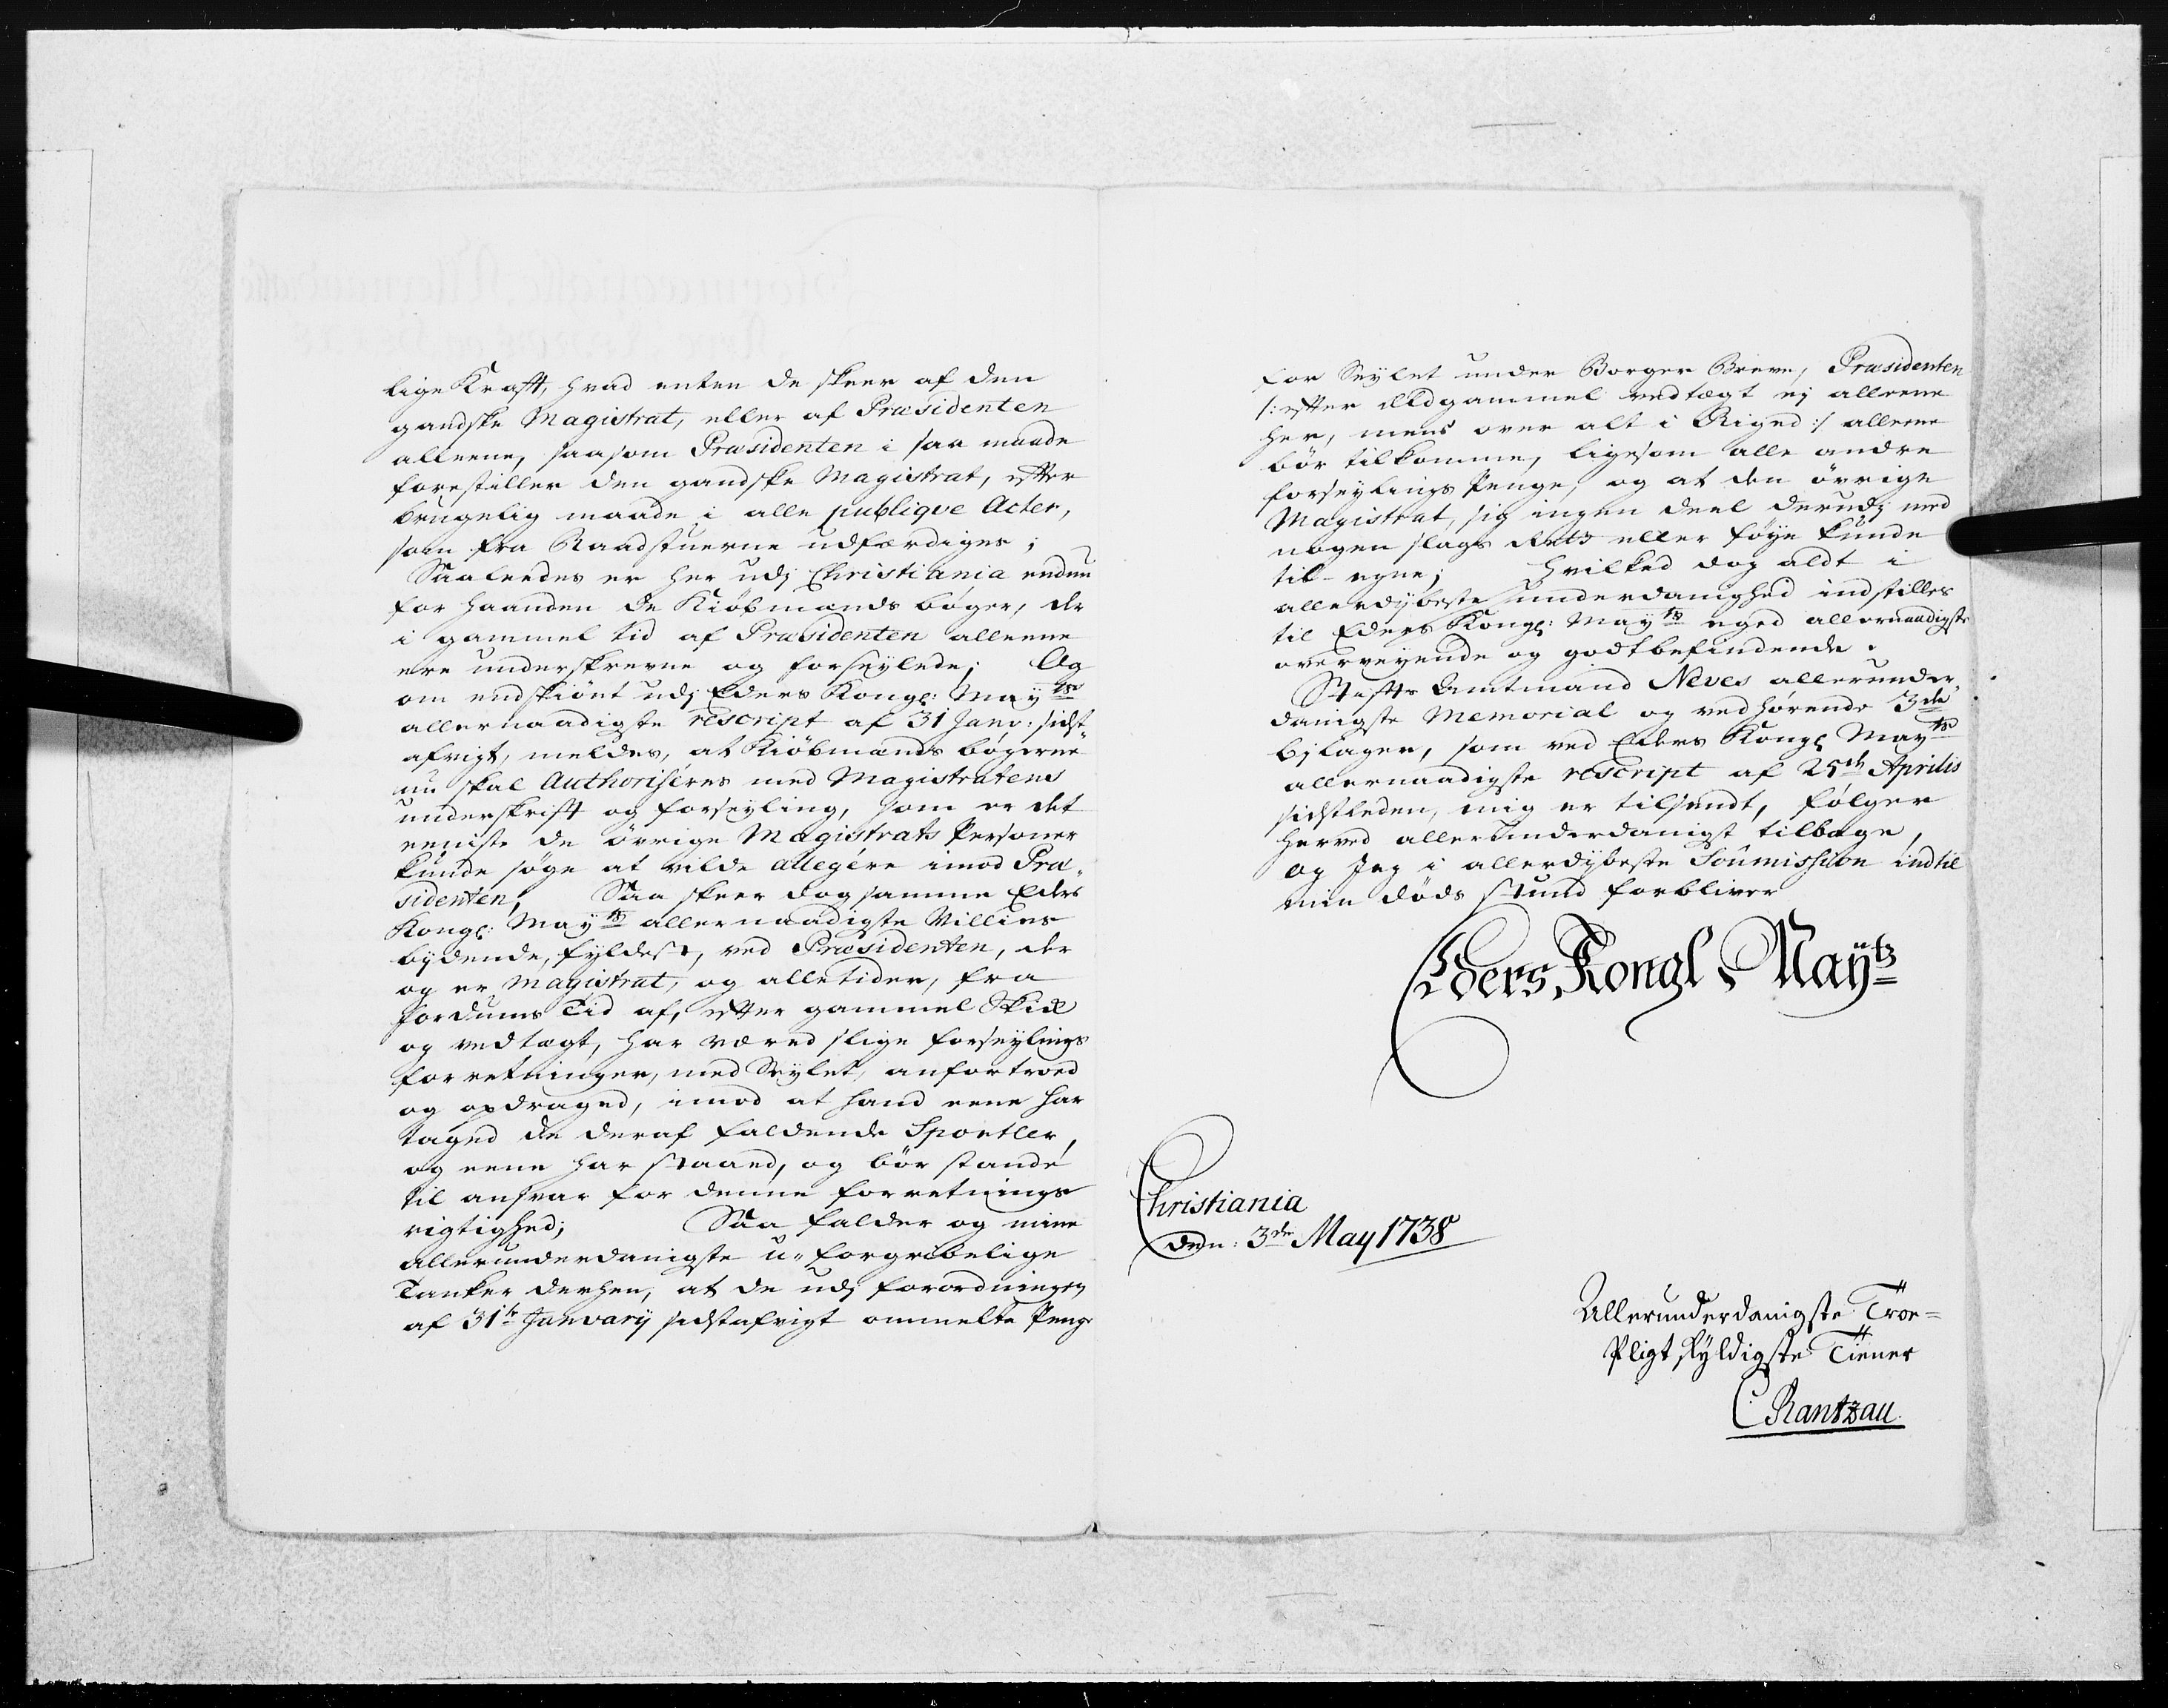 lige Kraft, hvad enten de skeer af den
gandske Magistrat, eller af Præsidenten
alleene, saasom Præsidenten i saa maade
forestiller den gandske Magistrat, efter
brugelig maade i alle publiqve Acter,
som fra Raadstuerne udfærdiges;
Saaleedes er her udj Christiania endnu
for haanden de Kiöbmands bøger, der
i gammel tid af Præsidenten alleene
ere underskrevne og forseylede; Og
om endskiönt udj Eders Kongl: Mayts
allernaadigste rescript af 31 Janv: sidst
afvigt, meldes, at Kiöbmands bøgerne
nu skal Authoriseres med Magistratens
underskrift og forseyling, som er det
eeniste de övrige Magistrats Personer
kunde søge at vilde allegére imod Præ„
sidenten, Saa skeer dog samme Eders
Kongl: Mayts allernaadigste Villies
bydende, fyldest, ved Præsidenten, der
og er Magistrat, og alletider, fra
fordums Tid af, efter gammel Skik
og vedtægt, har væred slige forseylings
forretninger, med Seylet, anfortroed
og opdraged, imod at hand eene har
taged de deraf faldende Sportler,
og eene har staaed, og bör stande
til ansvar for denne forretnings
rigtighed; Saa falder og mine
allerunderdanigste u„forgribelige
Tanker derhen, at de udj forordningen
af 31te Janvarij sidstafvigt ommelte Penge
for Seylet under Borger Breve, Præsidenten
/: efter Eldgammel vedtægt ej alleene
her, mens over alt i Riged :/ alleene
bör tilkomme, ligesom alle andre
forseylings Penge, og at den övrige
Magistrat, sig ingen deel derudj med
nogen slags Rett eller föye kunde
til-egne; hvilked dog aldt i
allerdybeste underdanighed indstilles
til Eders Kongl: Mayts eged allernaadigste
overveyende og godtbefindende.
Stifts Amtmand Neves allerunder„
danigste Memorial og ved hørende 3de
bilager, som ved Eders Kongl Mayts
allernaadigste rescript af 25de Aprilis
sidstleden, mig er tilsendt, følger
herved allerunderdanigst tilbage,
og Jeg i allerdybeste Soumission indtil
min døds stund forbliver
Eders Kongl Mayts
Christiania
den: 3de May 1738
Allerunderdanigste Troe-
Pligt skyldigste Tiener
C Rantzau.